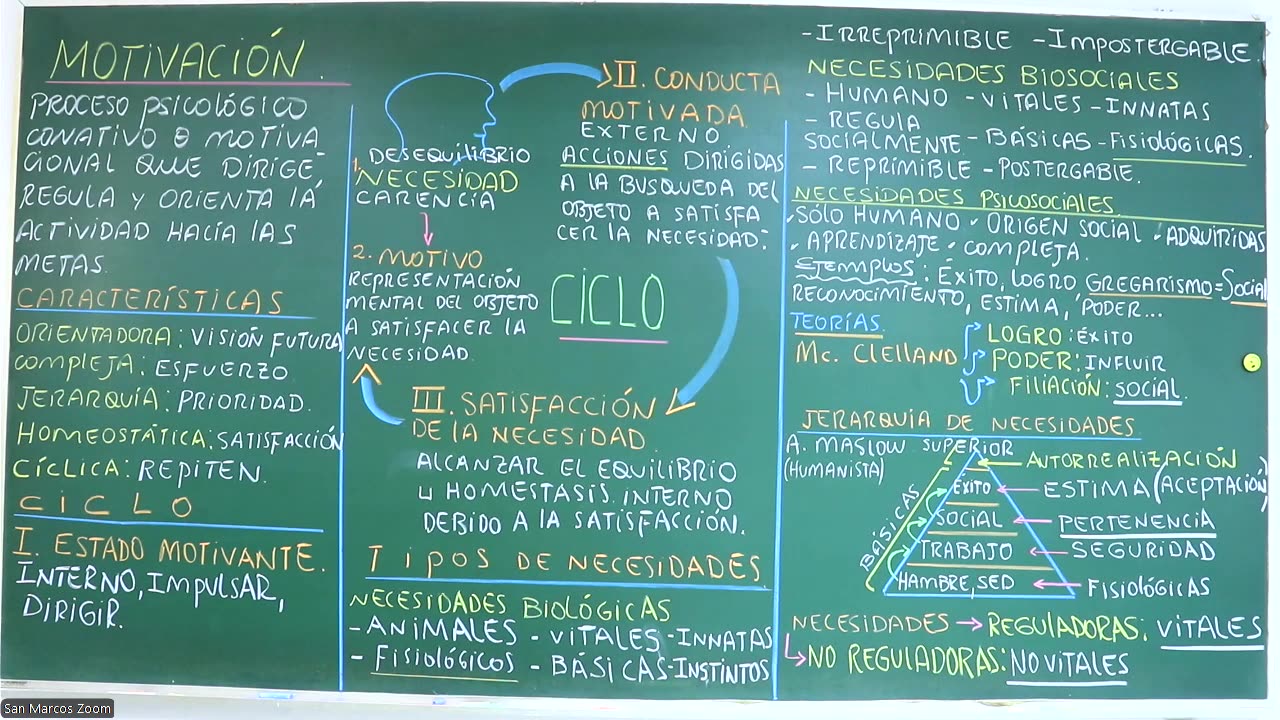 MOTIVACIÓN.
PROCESO PSICOLÓGICO
CONATIVO O MOTIVA
CIONAL QUE DIRIGE,
REGULA Y ORIENTA LA
ACTIVIDAD HACÍA LAS
METAS.
CARACTERÍSTICAS
ORIENTADORA: VISIÓN FUTURA
COMPLEJA: ESFUERZO
JERARQUÍA: PRIORIDAD.
HOMEOSTÁTICA: SATISFACCIÓN
CÍCLICA: REPITEN.
CICLO
I. ESTADO MOTIVANTE.
INTERNO, IMPULSAR,
DIRIGIR.
DESEQUILIBRIO
1. NECESIDAD
CARENCIA
2. MOTIVO
REPRESENTACIÓN
MENTAL DEL OBJETO
A SATISFACER LA
NECESIDAD.
II. CONDUCTA
MOTIVADA.
EXTERNO
ACCIONES DIRIGIDAS
A LA BUSQUEDA DEL
OBJETO A SATISFA
CER LA NECESIDAD.
CICLO
III. SATISFACCIÓN
DE LA NECESIDAD.
ALCANZAR EL EQUILIBRIO
U HOMESTASIS INTERNO
DEBIDO A LA SATISFACCIÓN.
TIPOS DE NECESIDADES
NECESIDADES BIOLÓGICAS
- ANIMALES - VITALES - INNATAS
- FISIOLÓGICOS - BÁSICAS - INSTINTOS
- IRREPRIMIBLE - IMPOSTERGABLE.
NECESIDADES BIOSOCIALES
- HUMANO - VITALES - INNATAS
- REGULA
SOCIALMENTE - BÁSICAS - FISIOLÓGICAS.
- REPRIMIBLE - POSTERGABLE.
NECESIDADES PSICOSOCIALES.
• SÓLO HUMANO • ORIGEN SOCIAL • ADQUIRIDAS
• APRENDIZAJE • COMPLEJA.
EJEMPLOS: ÉXITO, LOGRO GREGARISMO = SOCIAL
RECONOCIMIENTO, ESTIMA, PODER...
TEORÍAS.
Mc. CLELLAND
LOGRO: ÉXITO
PODER: INFLUIR
FILIACIÓN: SOCIAL.
JERARQUÍA DE NECESIDADES
A. MASLOW SUPERIOR
(HUMANISTA)
BÁSICAS
AUTORREALIZACIÓN
ÉXITO ESTIMA (ACEPTACIÓN)
SOCIAL PERTENENCIA
TRABAJO SEGURIDAD
HAMBRE, SED FISIOLÓGICAS
NECESIDADES → REGULADORAS: VITALES
↳ NO REGULADORAS: NO VITALES
San Marcos Zoom